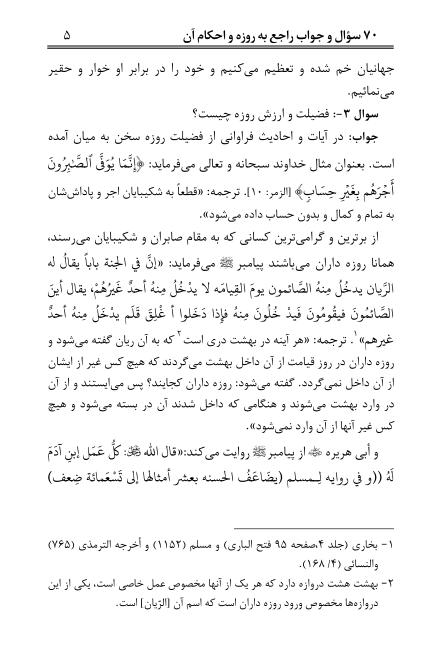 ۷۰ سؤال و جواب راجع به روزه و احکام آن ۵
جهانیان خم شده و تعظیم می‌کنیم و خود را در برابر او خوار و حقیر
می‌نمائیم.
سوال ۳-: فضیلت و ارزش روزه چیست؟
جواب: در آیات و احادیث فراوانی از فضیلت روزه سخن به میان آمده
است. بعنوان مثال خداوند سبحانه و تعالی می‌فرماید: ﴿إِنَّمَا يُوَفَّى ٱلصَّٰبِرُونَ
أَجۡرَهُم بِغَيۡرِ حِسَابٖ﴾ [الزمر: ۱۰]. ترجمه: «قطعاً به شکیبایان اجر و پاداش‌شان
به تمام و کمال و بدون حساب داده می‌شود».
از برترین و گرامی‌ترین کسانی که به مقام صابران و شکیبایان می‌رسند،
همانا روزه داران می‌باشند پیامبر ﷺ می‌فرماید: «إنَّ في الجنة باباً يقالُ له
الرَّيان يدخُلُ مِنهُ الصَّائمون يومَ القِيامَه لا يدْخُلُ مِنهُ أحدٌ غَيرُهُمْ، يقال أينَ
الصَّائمُونَ فيقُومُونَ فَيَدْ خُلُونَ مِنهُ فإذا دَخَلوا أ غْلِقَ فَلَم يدْخَل مِنهُ أحدٌ
غيرهم»۱. ترجمه: «هر آینه در بهشت دری است۲ که به آن ریان گفته می‌شود و
روزه داران در روز قیامت از آن داخل بهشت می‌گردند که هیچ کس غیر از ایشان
از آن داخل نمی‌گردد. گفته می‌شود: روزه داران کجایند؟ پس می‌ایستند و از آن
در وارد بهشت می‌شوند و هنگامی که داخل شدند آن در بسته می‌شود و هیچ
کس غیر آنها از آن وارد نمی‌شود».
و أبی هریره ﷺ از پیامبرﷺ روایت می‌کند:«قال الله ﷻ: كلُّ عَمَل إبنِ آدَمَ
لَهُ ((و في روايه لِـمسلم (يضَاعَفُ الحسنه بعشر أمثالها إلى تَسْعَمائة ضِعف)
۱- بخاری (جلد ۴،صفحه ۹۵ فتح الباری) و مسلم (۱۱۵۲) و أخرجه الترمذی (۷۶۵)
والنسائی (۴/ ۱۶۸).
۲- بهشت هشت دروازه دارد که هر یک از آنها مخصوص عمل خاصی است، یکی از این
دروازه‌ها مخصوص ورود روزه داران است که اسم آن [الرّیان] است.